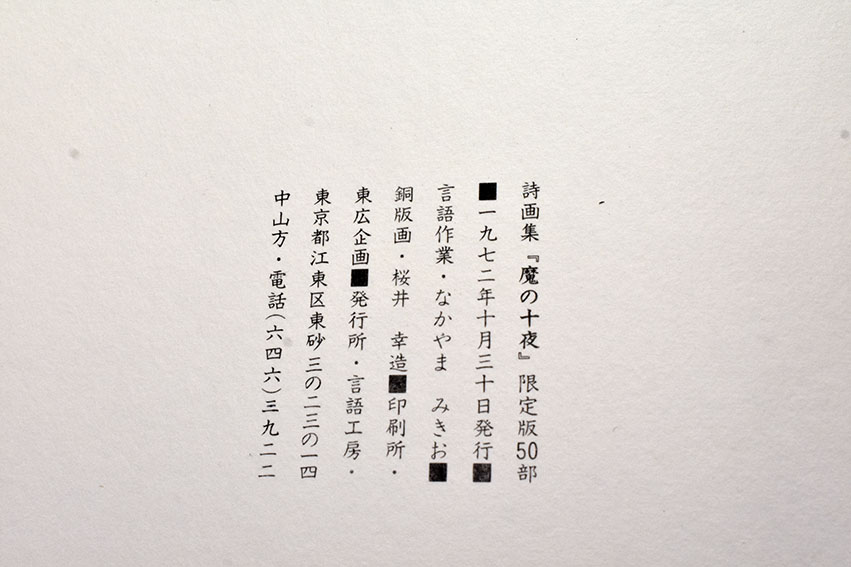 詩画集『魔の十夜』限定版50部
■一九七二年十月三十日発行■
言語作業・なかやま　みきお■
銅版画・桜井　幸造■印刷所・
東広企画■発行所・言語工房・
東京都江東区東砂三の二三の一四
中山方・電話(六四六)三九二二